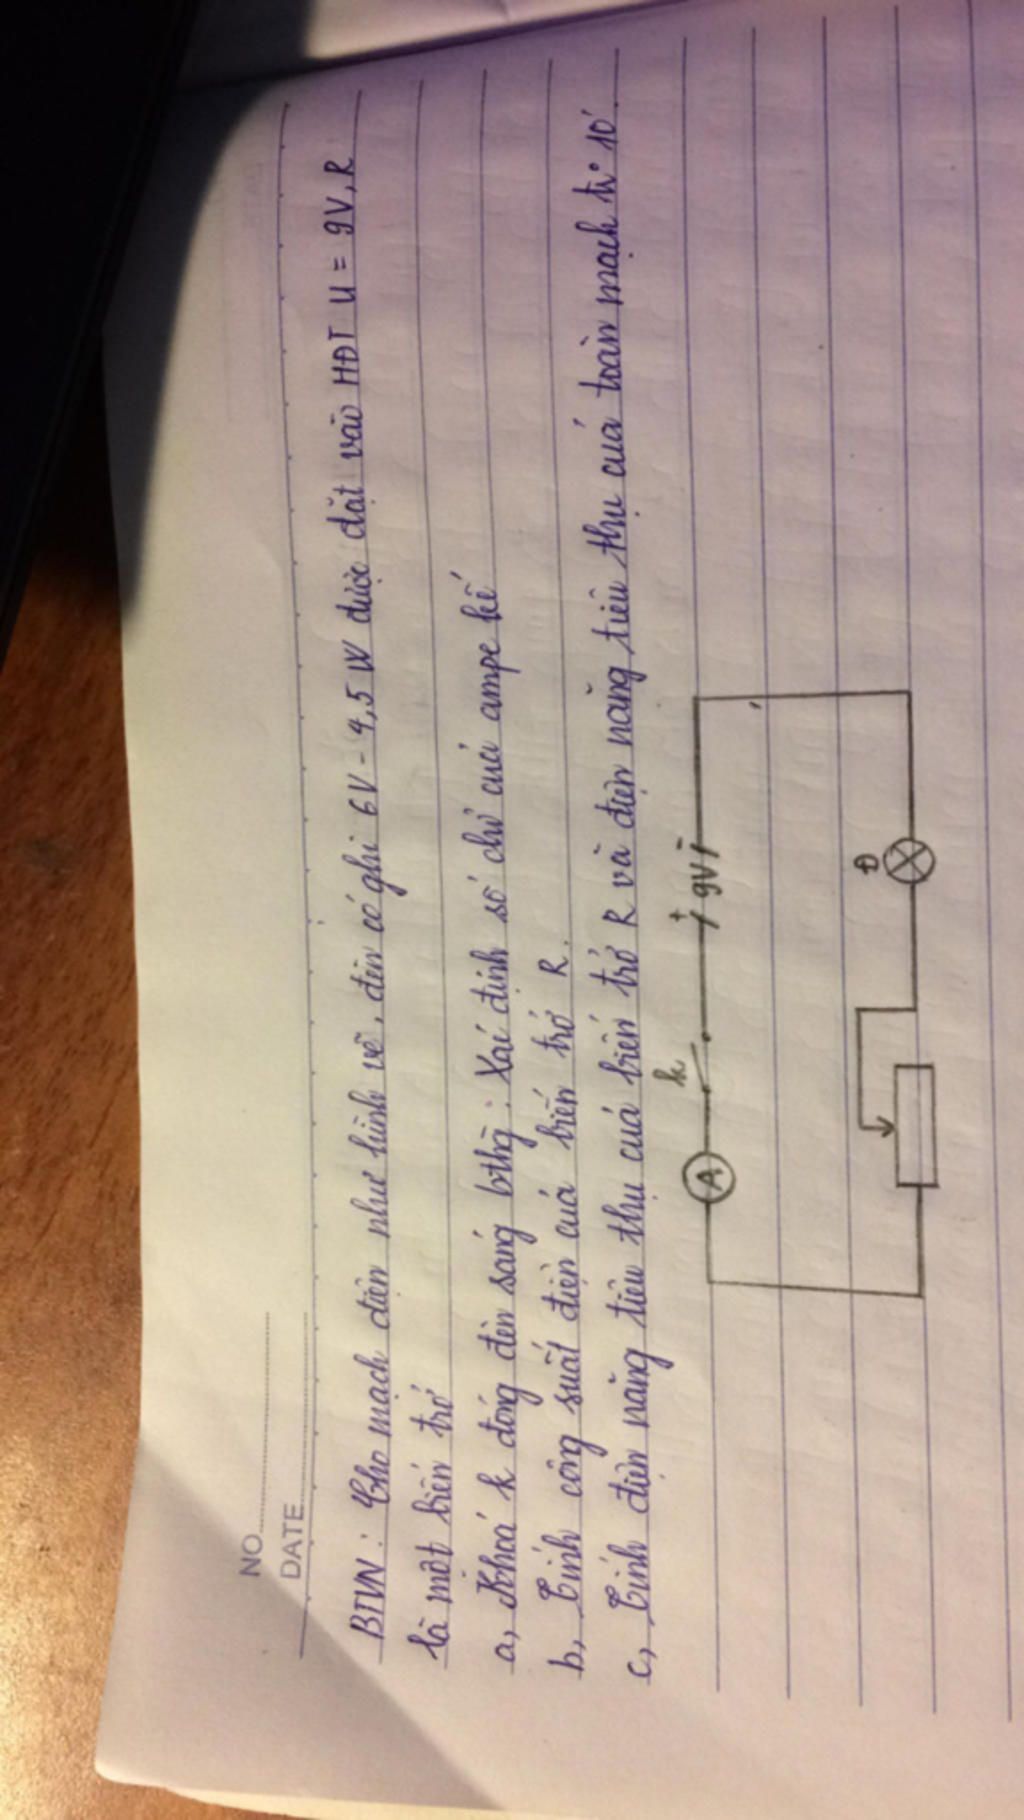 NO
DATE
BTVN: Cho mạch điện như hình vẽ, đèn có ghi 6V - 4,5W được đặt vào HĐT U = 9V, R
là một biến trở
a, Khoá k đóng đèn sáng bthg: Xác định số chỉ của ampe kế
b, Tính công suất điện của biến trở R.
c, Tính điện năng tiêu thụ của biến trở R và điện năng tiêu thụ của toàn mạch tr° 10'
A k + 9V -
Đ